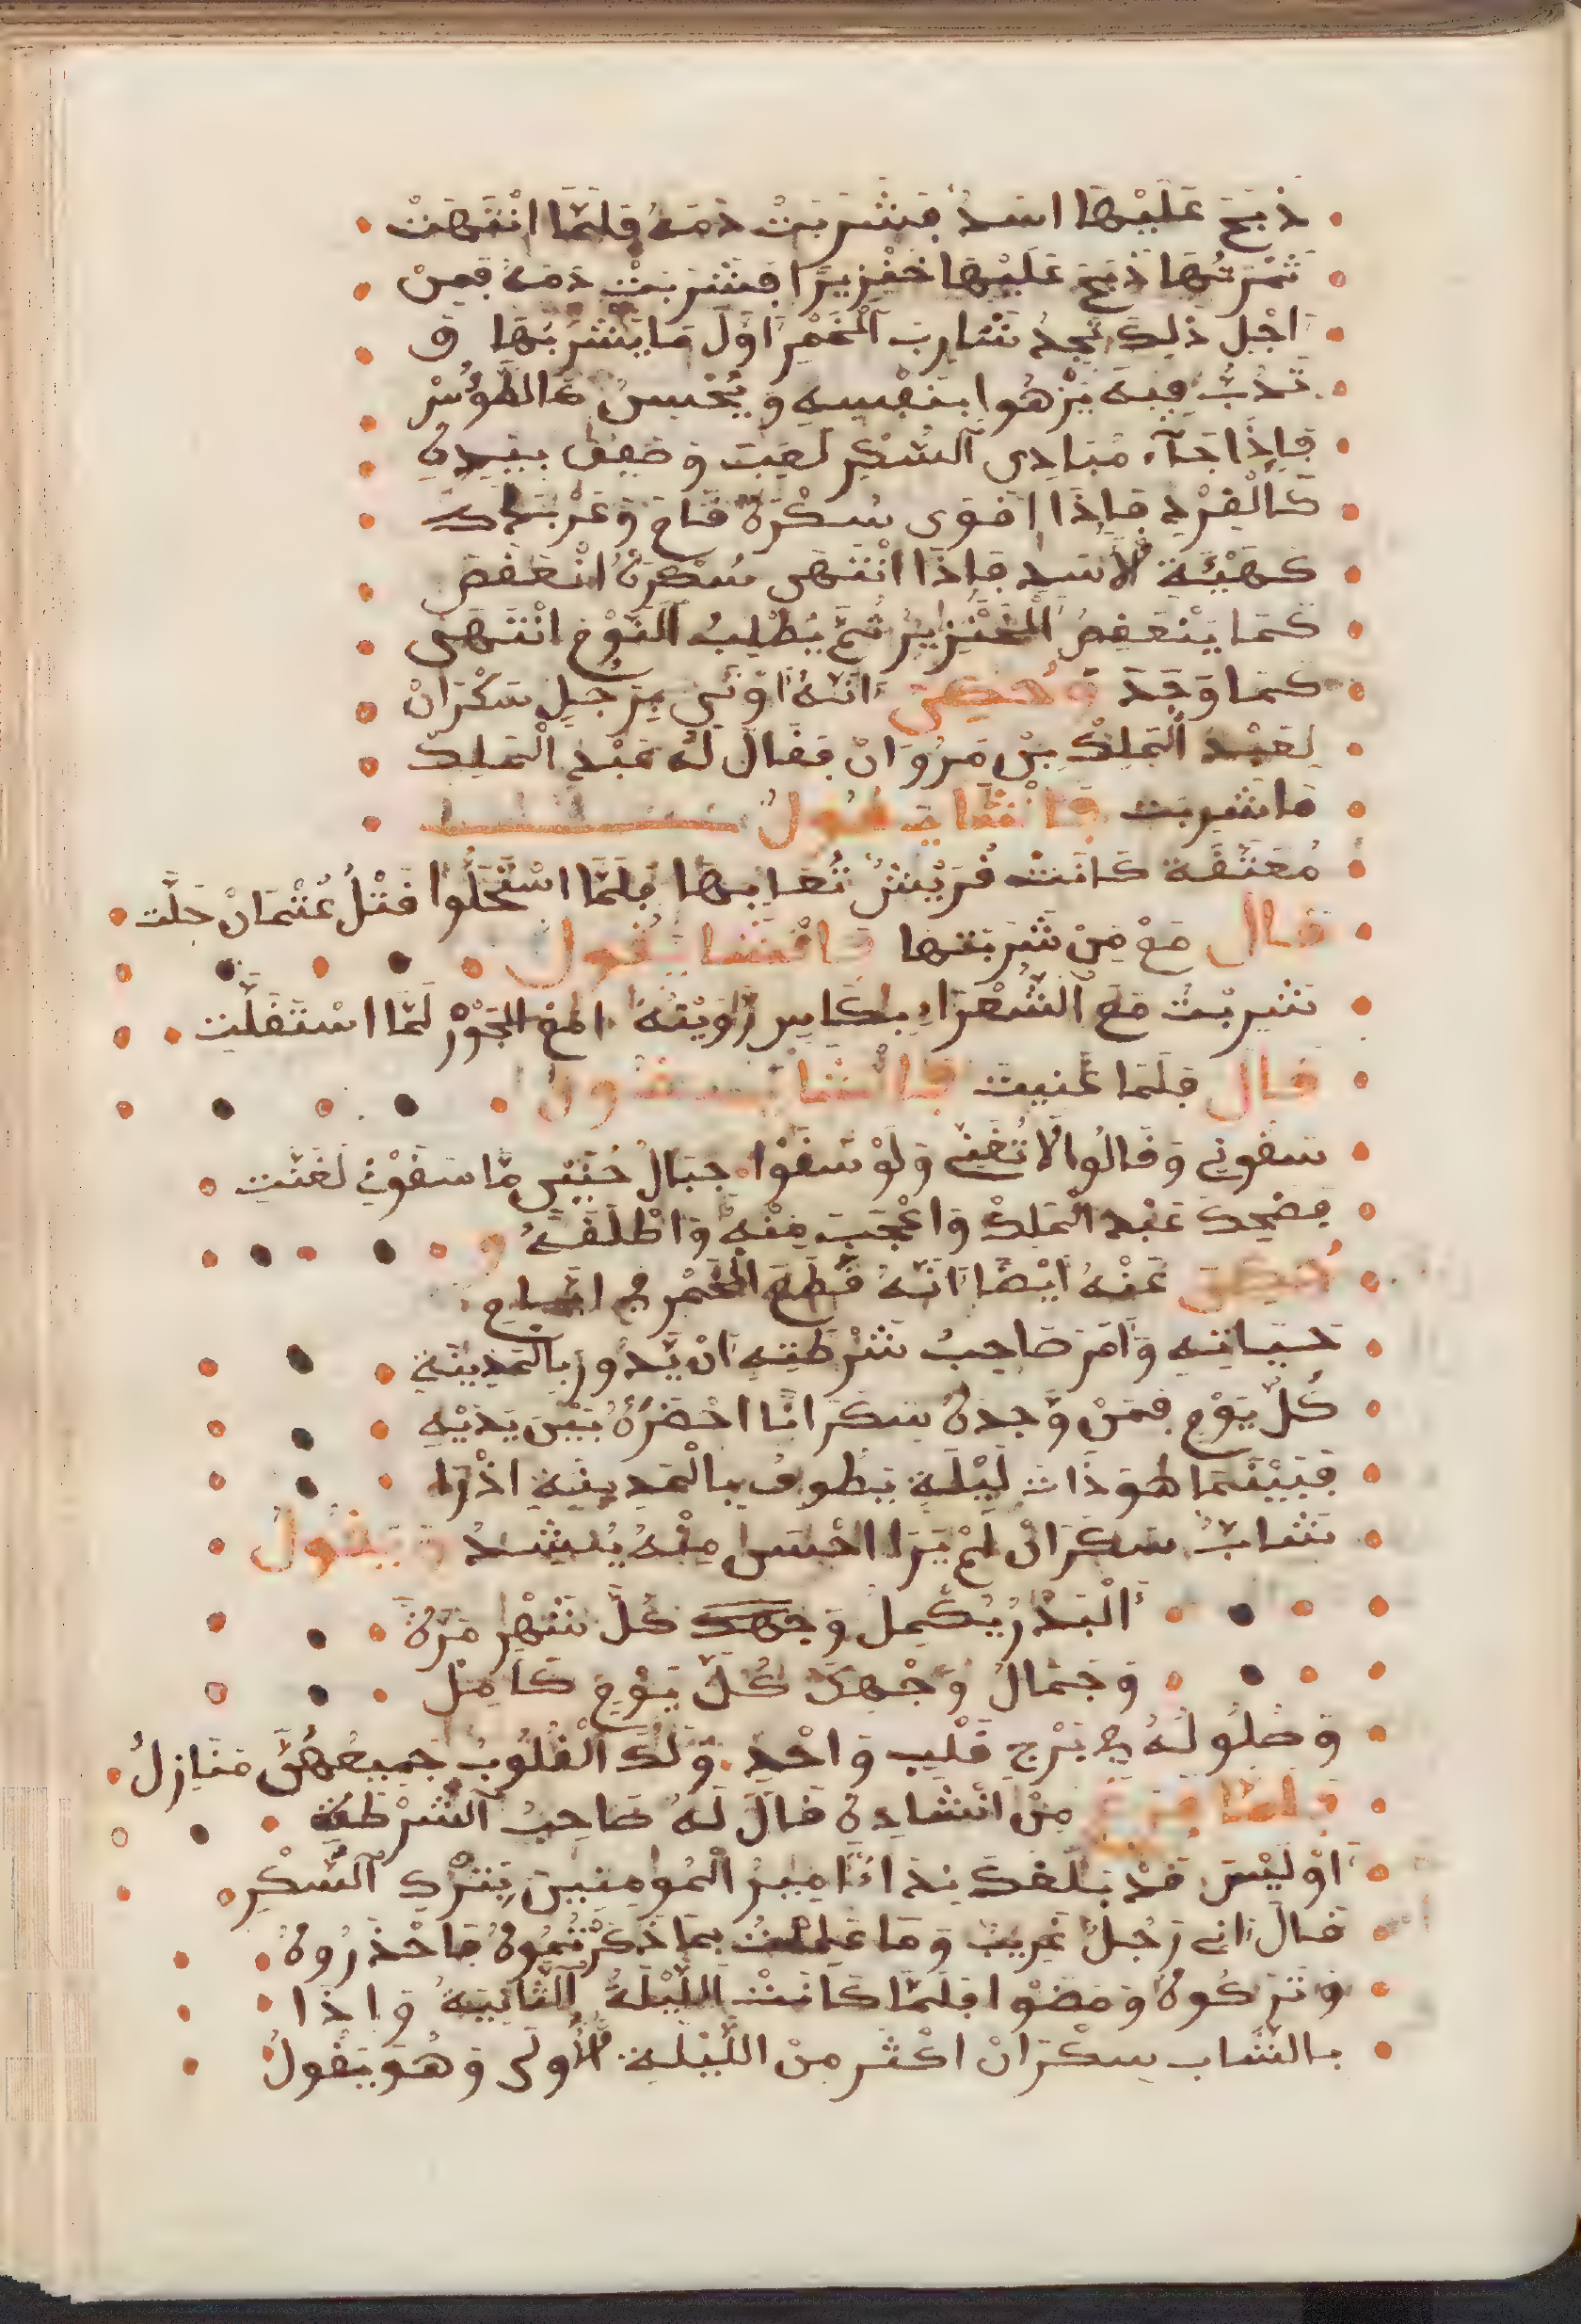 ذبح عَلَيْهَا اسَدُ فِشَرِبَتْ دَمَهُ فَلَمَّا انْتَهَتْ
ثَمَرَتُهَا ذَبَحَ عَلَيْهَا خَنْزِيرًا فِشَرِبَتْ دَمَهُ فَمِنْ
اَجْلِ ذٰلِكَ تَجِدُ شَارِبَ اَلْخَمْرِ اَوَّلَ مَا يَشْرَبُهَا وَ
تَدُبُّ فِيهَ يَزْهُوا بِنَفْسِهِ وَ يُحْبِسُ كَالطَّؤُسْ
فَاِذَا جَآءَ مَبَادِى اَلسُّكْرِ لَعِبَ وَ صَفِقَ بِيَدِهِ
كَالْقِرْدِ فَاِذَا اقَوَى سُكْرَهُ قَامَ وَ عَرْبَدَ
كَهَيْئَةِ لْاَسَدِ فَاِذَا انْتَهَى سُكْرَهُ انْعَقَصَ
كَمَا يَنْعَقِصُ الْخَنْزِيرُ ثُمَّ يُطْلِبُ اَلنَّوْمَ انْتَهَى
كَمَا وَجَدَ وَحُكِيَ اَنَّهُ اُوْتِيَ بِرَجُلٍ سَكْرَانْ
لِعَبْدِ اَلْمَلِكْ بِنْ مَرْوَانْ فَقَالَ لَهُ عَبْدِ الْمَلِكْ
مَا شَرِبَت فَاَنْشَا يَقُولُ
مُعَتَّقَة كَانَتْ قُرَيْشُ تُعَابِهَا فَلَمَّا اسْتَحَلُّوا قَتْلُ عُثْمَانْ حَلَّت
قَالَ مَعْ مَنْ شَرِبَتهَا فَانْشَا يَقُولُ
شَرِبْتُ مَعَ اَلشُّعْرَاءِ بِكَاسٍ رَّاوَيْتُهُ الجَوْزْ لَمَّا اسْتَقَلَّتِ
قَالَ فَلَمَا غَنيتَ فَانْشَا يَقُولُ
سَقَوْنِي وَ قَالُوا لَا تُغَنِّي وَلَوْ سَقَوْا جِبَالُ حُنَيْنٍ مَّا سَقَوْنِي لَغَنَّتِ
فَضَحِكَ عَبْد الْمَلِكْ وَاعْجَبَ مِنْهُ وَاطْلَقَهُ وَ
حُكِيَ عَنْهُ اَيْضًا اَنَّهُ قَطَعَ الْخَمْرَ فِي
حَيَاتِهِ وَاَمَرَ صَاحِبُ شَرْطَتِهِ اَنْ يَّدُورَ بِالْمَدِينَةِ
كُلَّ يَوْمٍ فَمَنْ وَّجَدَهُ سَكَرَانًا احْضَرَهُ بَيْنَ يَدَيْهِ
فَبَيْنَمَا هُوَ ذَاتَ لَيْلَةٍ يَطُوفُ بِالْمَدِينَةِ اذْرَا
شَابٌ سَكَرَانْ لَمْ يَرَا احْسَن مِنْهُ يُنْشِدُ وَ يَقُولُ
اَلْبَدْرُ يُكْمِلُ وَجْهَكَ كُلَّ شَهْرٍ مَرَّةً
وَجَمَالُ وَجْهِكَ كُلَّ يَوْمٍ كَامِلْ
وَحُلُولُهُ فِي بَرْجِ قَلْبٍ وَاحْدٍ وَلَكَ اَلْقُلُوبُ جَمِيعُهُنَّ مَنَازِلُ
فَلَمَّا فَرَغَ مِنْ انْشَادِهِ قَالَ لَهُ صَاحِبُ اَلشُّرْطَةِ
اَوْلَيْسَ قَدْ بَلَغَكَ نِدَاءُ اَمِيرُ الْمُومِنِينَ بِتَرْكِ اَلسُّكْرِ
قَالَ اني رَجُلٌ غَرِيبٌ وَ مَا عَلِمْتُ بِمَا ذَكَرْتُمُوهُ فَاحْذَرُوهُ
وَ تَرَكُوهُ وَ مَضَوْا فَلَمَّا كَانَتْ اللَّيْلَةُ اَلثَّانِيَةُ وَ اذَا
بالشَّاب سَكْرَانْ اكْثَر مِنْ اللَّيْلَةِ لْاُولَى وَ هُوَ يَقُولُ